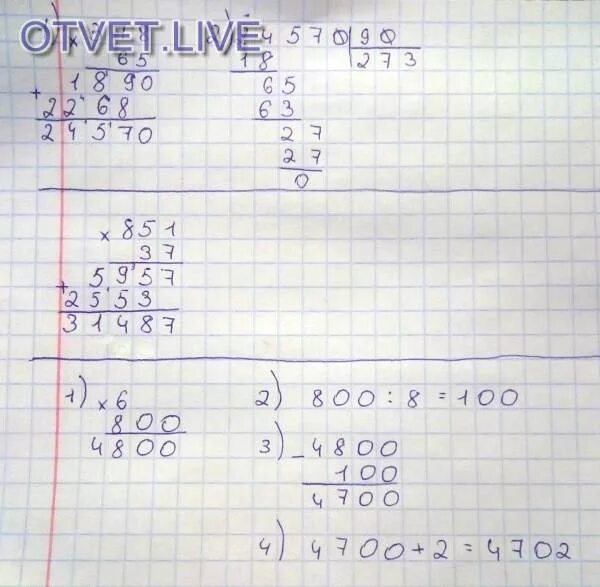 OTVET.LIVE
× 8
65
1890
+
2268
24570
4570 90
18 273
65
63
27
27
0
× 851
37
5957
+
2553
31487
1) × 6
800
4800
2) 800 : 8 = 100
3) - 4800
100
4700
4) 4700 + 2 = 4702